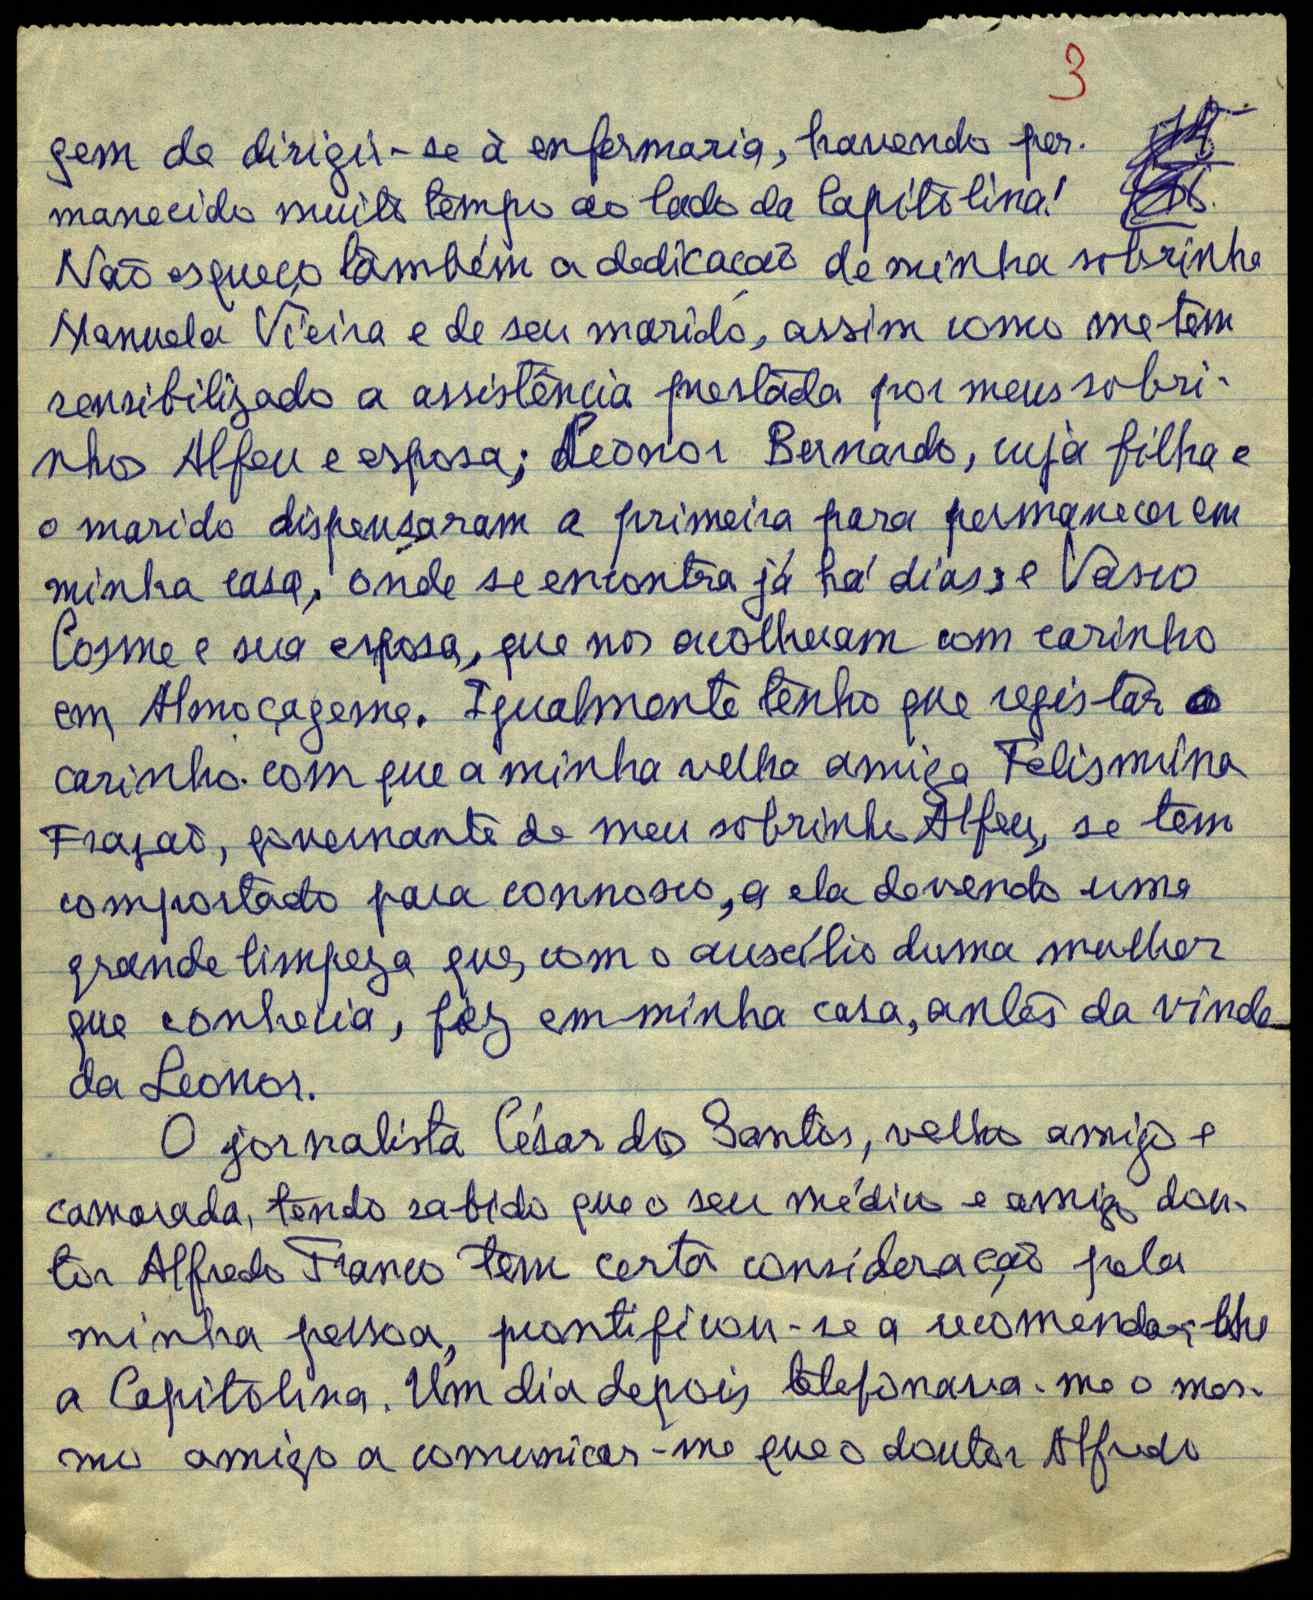 3
gem de dirigir-se à enfermaria, havendo per-
manecido muito tempo ao lado da Capitolina!
Não esqueço também a dedicação de minha sobrinha
Manuela Vieira e de seu marido, assim como me tem
sensibilizado a assistência prestada por meus sobri-
nhos Alfeu e esposa; Leonor Bernardo, cuja filha e
o marido dispensaram a primeira para permanecer em
minha casa, onde se encontra já há dias; e Vasco
Cosme e sua esposa, que nos acolheram com carinho
em Almoçageme. Igualmente tenho que registar o
carinho com que a minha velha amiga Felismina
Frazão, governante de meu sobrinho Alfeu, se tem
comportado para connosco, a ela devendo uma
grande limpeza que, com o auxílio duma mulher
que conhecia, fez em minha casa, antes da vinda
da Leonor.
O jornalista César dos Santos, velho amigo e
camarada, tendo sabido que o seu médico e amigo dou-
tor Alfredo Franco tem certa consideração pela
minha pessoa, prontificou-se a recomendar-lhe
a Capitolina. Um dia depois telefonava-me o mes-
mo amigo a comunicar-me que o doutor Alfredo